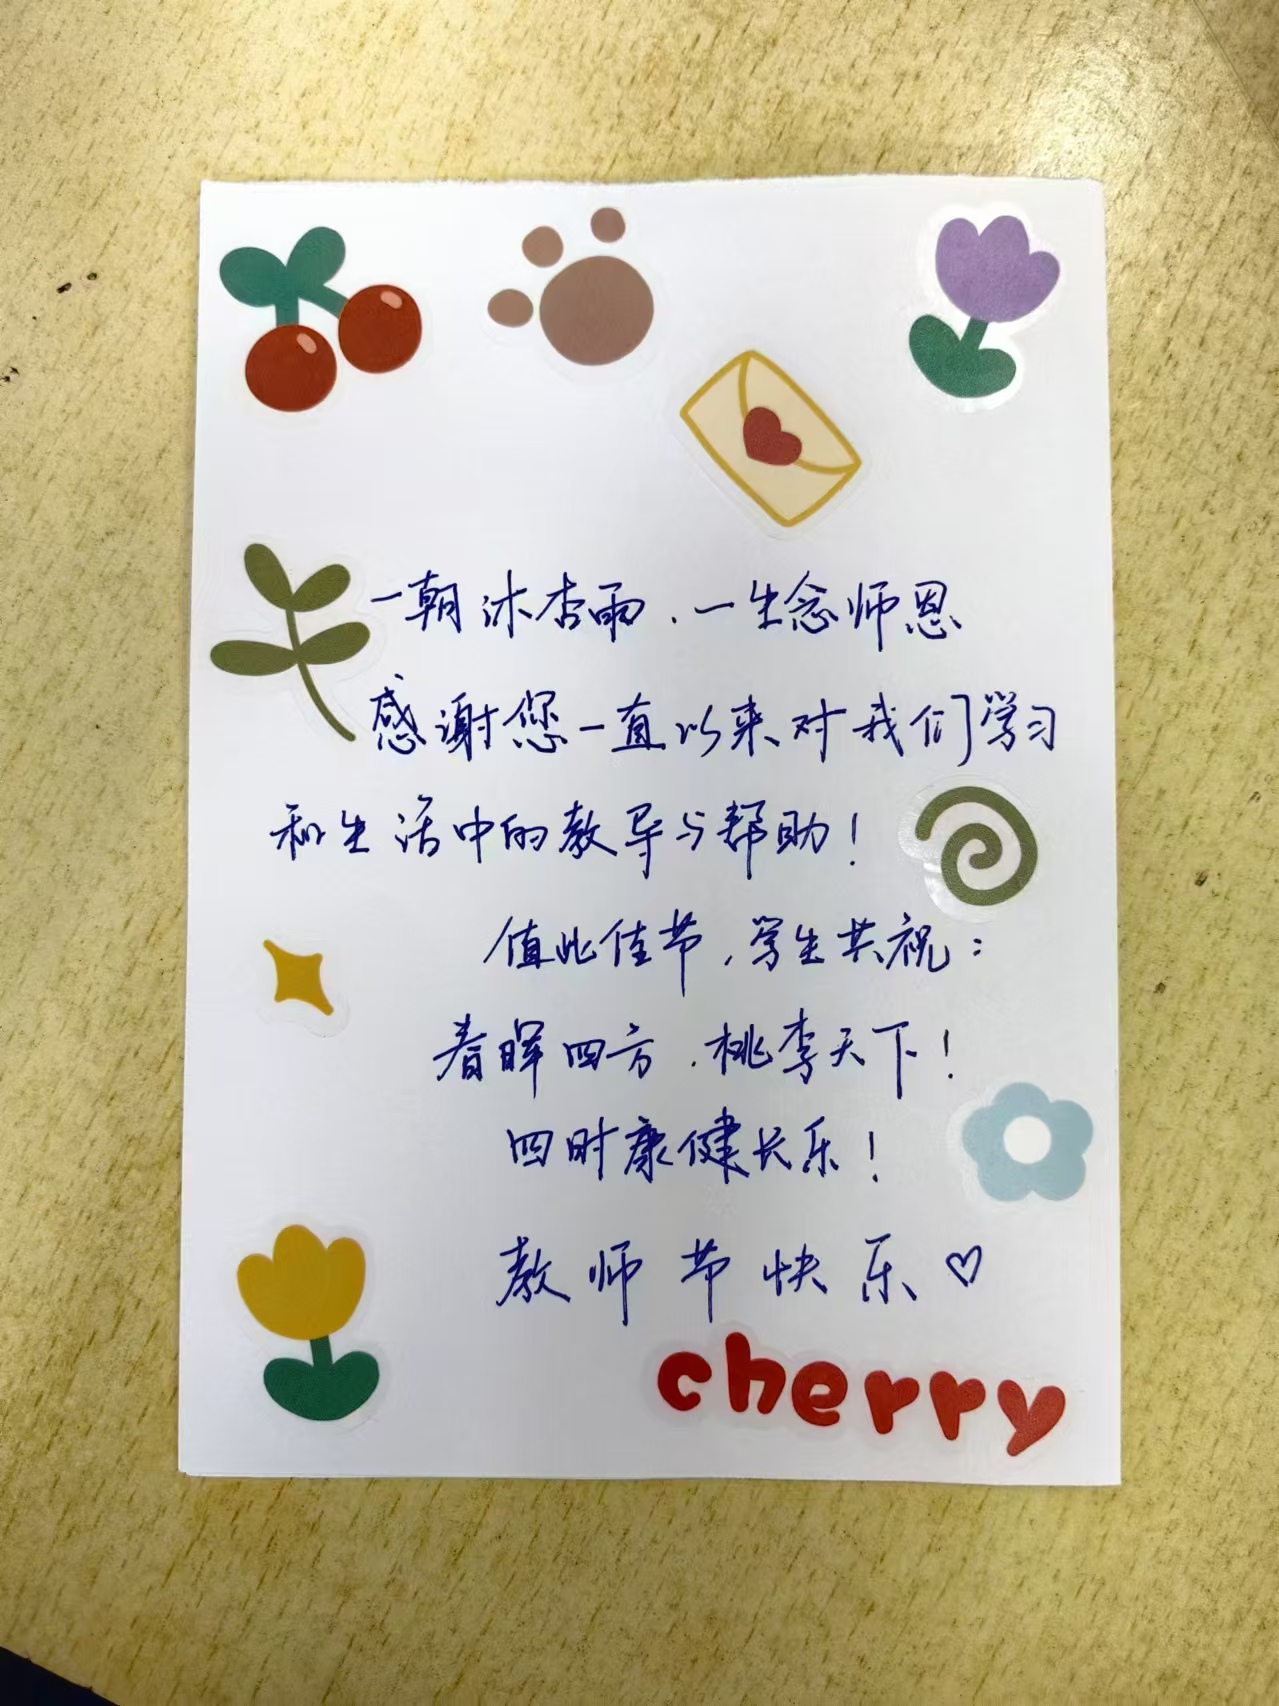 一朝沐杏雨，一生念师恩
感谢您一直以来对我们学习
和生活中的教导与帮助！
值此佳节，学生共祝：
春晖四方，桃李天下！
四时康健长乐！
教师节快乐♡
cherry